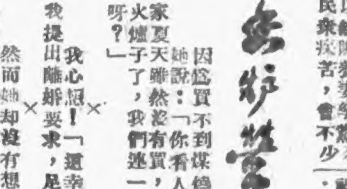 民衆疾苦，會不少
因爲買不到煤
她說：「你看人
家夏天雖然沒有買，
火爐子了，我們連一
呀？」
× ×
我心想！「這幸
我提出離婚要求，足
然而她却沒有想